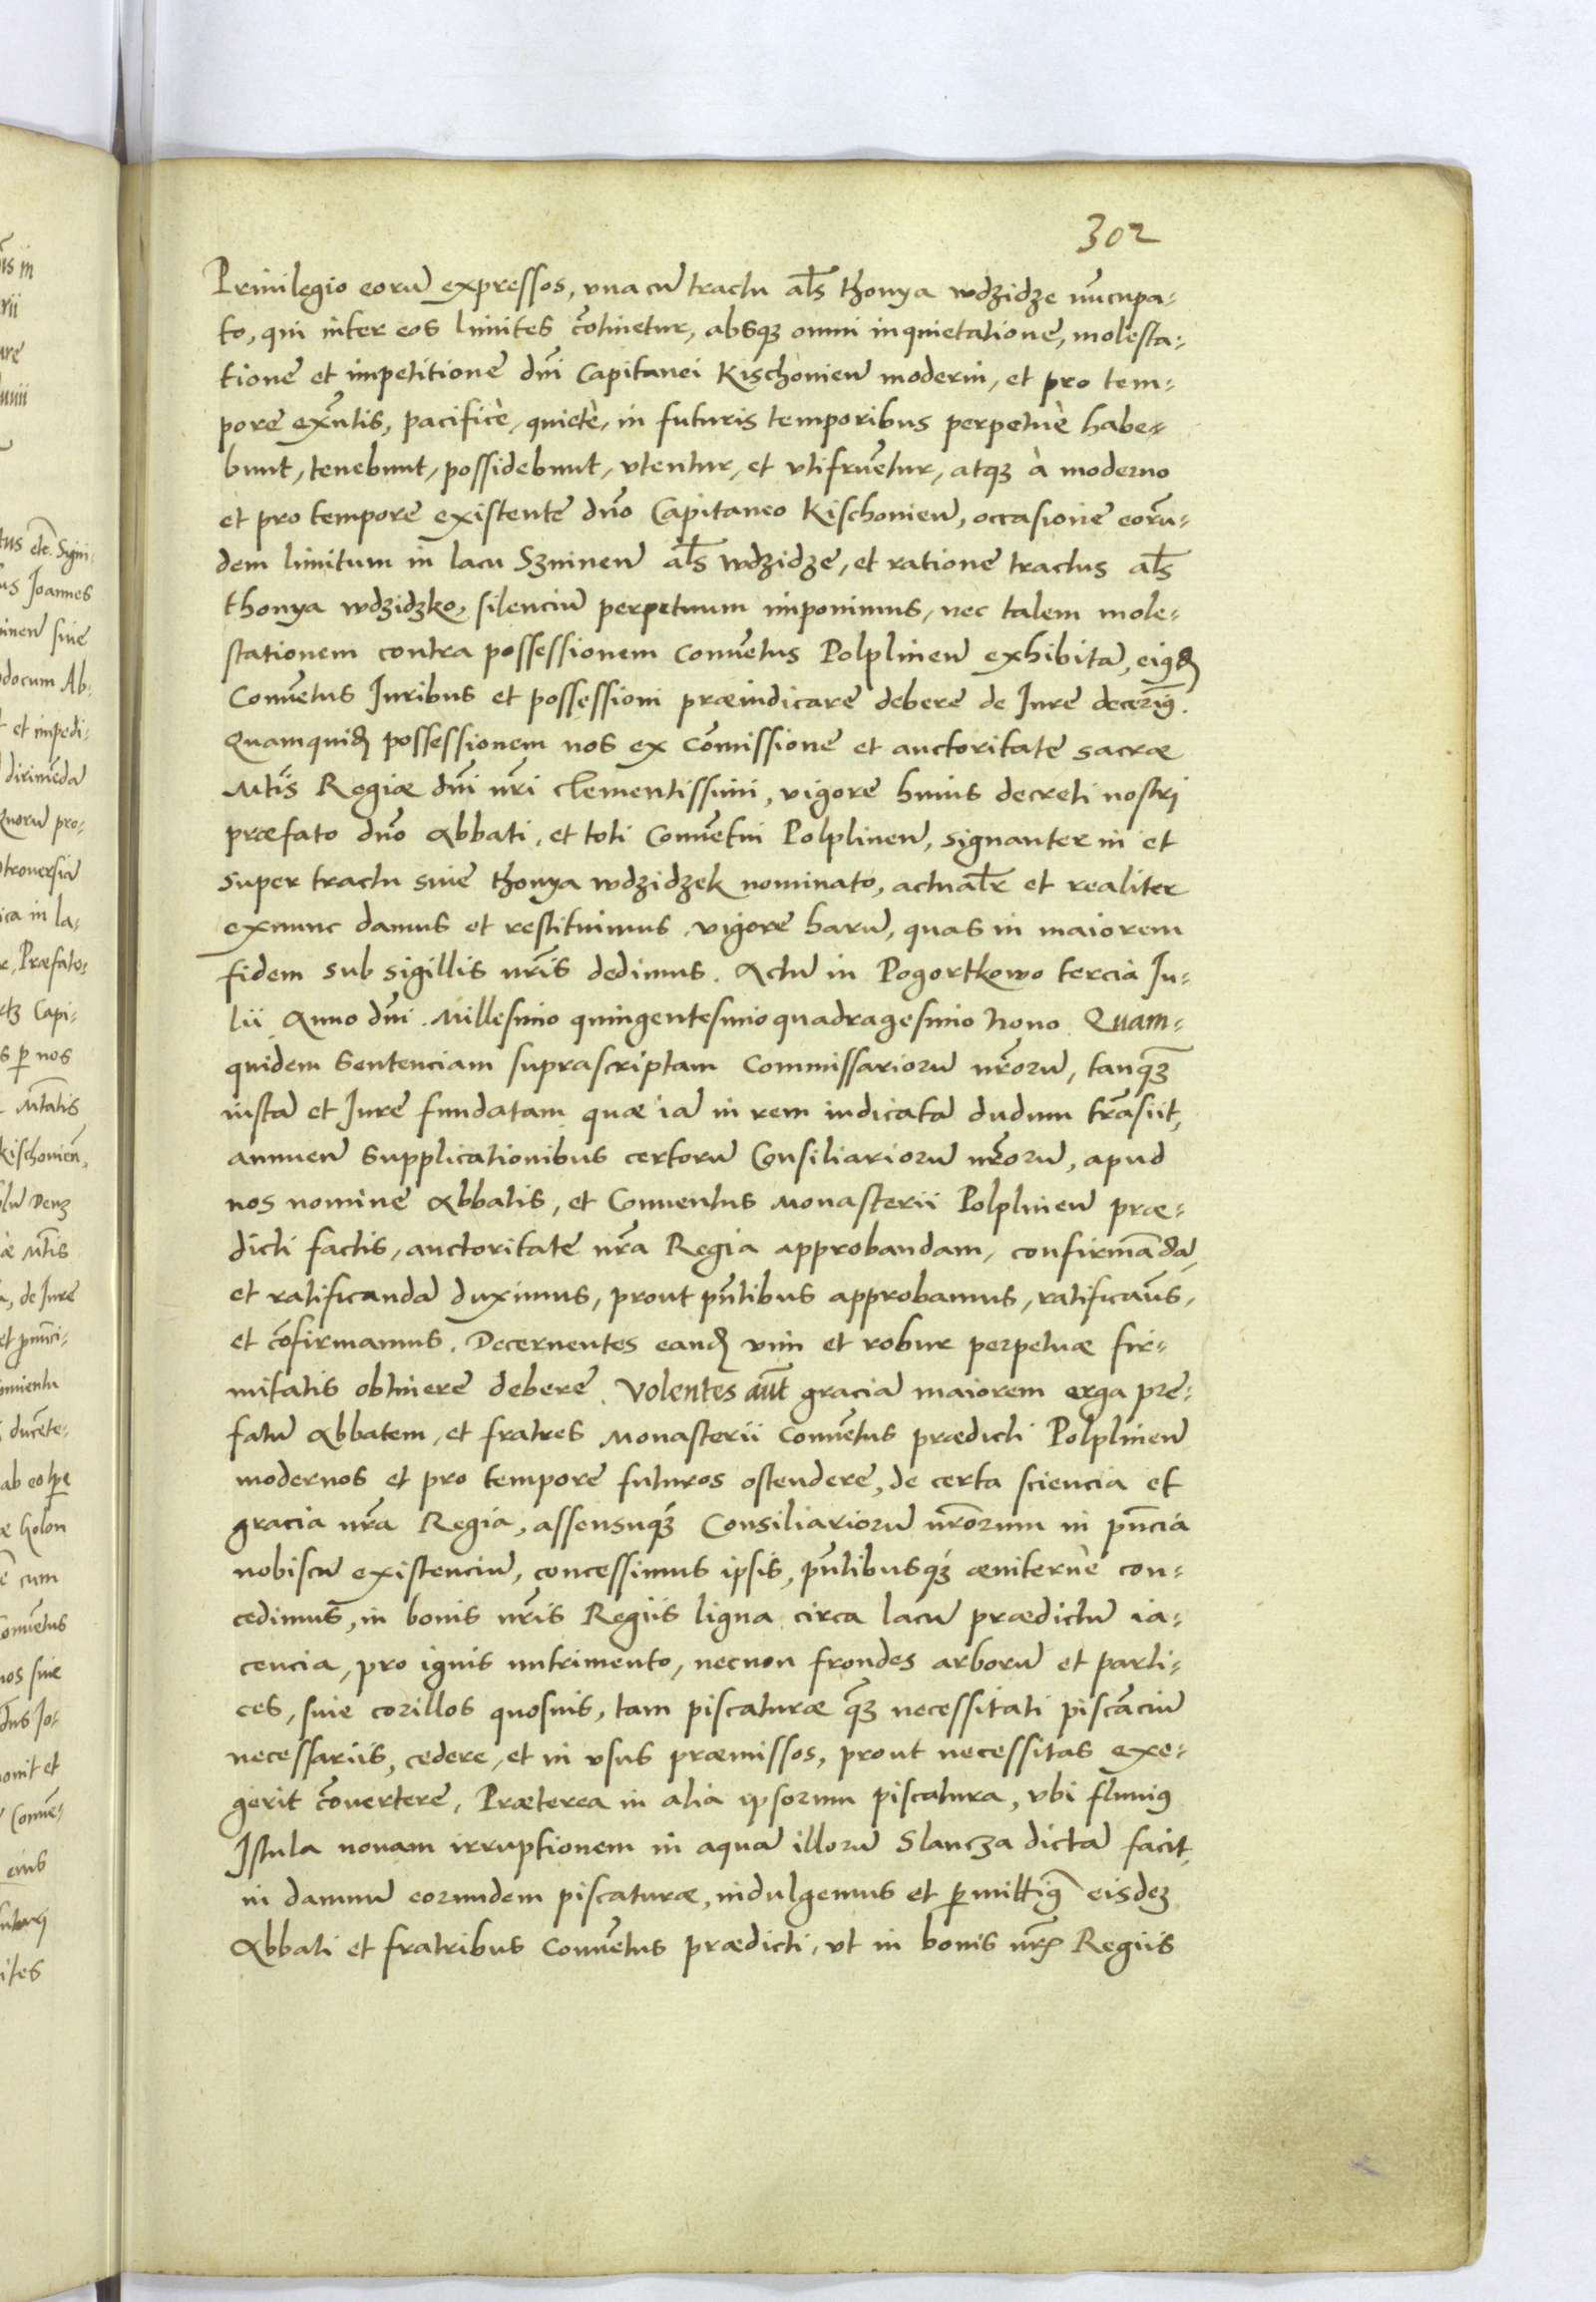 302
Priuilegio eorū expressos, vna cū tractu al̄s thonya wdzidze nūcupa-
to, qui inter eos limites cōtinetur, absqꝫ omni inquietatione, molesta-
tione et impetitione dn̄i Capitanei Kischonien̄ moderni, et pro tem-
pore exn̄tis, pacificè, quietè, in futuris temporibus perpetuè habe-
bunt, tenebunt, possidebunt, vtentur, et vtifruētur, atqꝫ à moderno
et pro tempore existente dn̄o Capitaneo Kischonien̄, occasione eorū-
dem limitum in lacu Szninen̄ al̄s wdzidze, et ratione tractus al̄s
thonya wdzidzko, silenciū perpetuum imponimus, nec talem mole-
stationem contra possessionem Conuētus Polplinen̄ exhibitā, eiꝰdē
Conuētus Iuribus et possessioni præiudicare debere de Iure decernimꝰ.
Quamquidē possessionem nos ex cōmissione et auctoritate sacræ
Mt̄is Regiæ dn̄i nr̄i clementissimi, vigore huius decreti nostri
præfato dn̄o Abbati, et toti Conuētui Polplinen̄, signanter in et
super tractu siue thonya wdzidzek nominato, actual̄r et realiter
exnunc damus et restituimus, vigore harū, quas in maiorem
fidem sub sigillis nr̄is dedimus. Actū in Pogortkowo tercia Iu-
lii Anno dn̄i Millesimo quingentesimo quadragesimo nono. Quam-
quidem Sentenciam suprascriptam Commissariorū nr̄orū, tanqꝫ
iustā et Iure fundatam quæ iā in rem iudicatā dudum trāsiit,
annuen̄ Supplicationibus certorū Consiliariorū nr̄orū, apud
nos nomine Abbatis, et Conuentus Monasterii Polplinen̄ præ-
dicti factis, auctoritate nr̄a Regia approbandam, confirmādā,
et ratificandā duximus, prout pn̄tibus approbamus, ratificam̄s,
et cōfirmamus. Decernentes eandē vim et robur perpetuæ fir-
mitatis obtinere debere. Volentes aūt graciā maiorem erga pre-
fatū Abbatem, et fratres Monasterii Conuētus prædicti Polplinen̄
modernos et pro tempore futuros ostendere, de certa sciencia et
gracia nr̄a Regia, assensuqꝫ Consiliariorū nr̄orum in pn̄cia
nobiscū existenciū, concessimus ipsis, pn̄tibusqꝫ æuiternè con-
cedimus, in bonis nr̄is Regiis ligna circa lacū prædictū ia-
cencia, pro ignis nutrimento, necnon frondes arborū et parti-
ces, siue corillos quosuis, tam piscaturæ qꝫ necessitati piscāciū
necessariis, cedere, et in vsus præmissos, prout necessitas exe-
gerit cōuertere, Præterea in alia ipsorum piscatura, vbi fluuiꝰ
Istula nouam irruptionem in aquā illorū Slancza dictā facit,
in damnū eorundem piscaturæ, indulgemus et ꝑmittimꝰ eisdeꝫ
Abbati et fratribus Conuētus prædicti, vt in bonis nr̄is Regiis